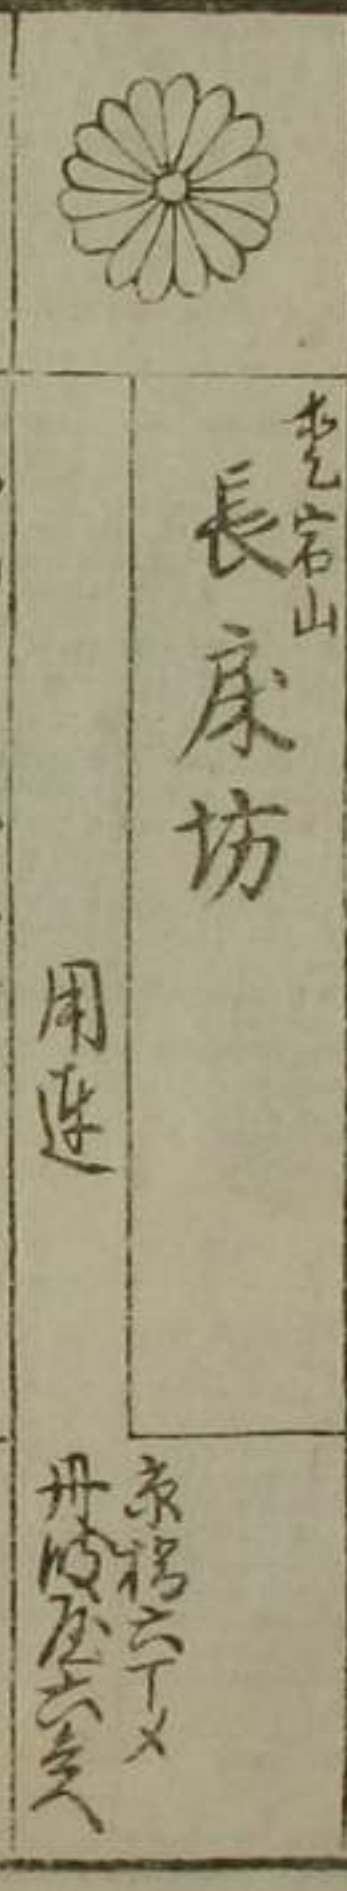 愛宕山
長床坊
用達
京橋六丁メ
丹波屋六兵へ